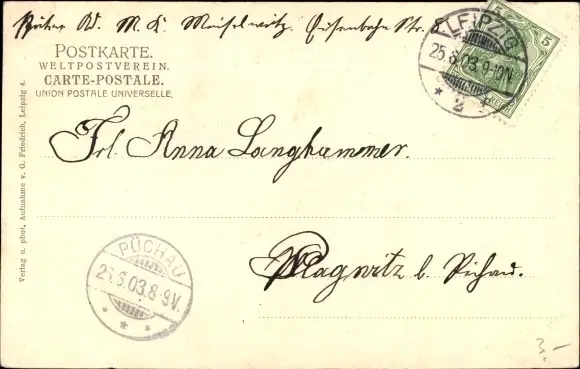 M. K. Meiselwitz, Eisenbahn Str. 8
POSTKARTE.
WELTPOSTVEREIN.
CARTE-POSTALE.
UNION POSTALE UNIVERSELLE.
LEIPZIG
25.6.03.9-10N
* 2
5
5
Frl. Anna Langhammer.
Verlag u. phot. Aufnahme v. G. Friedrich, Leipzig 4.
PÜCHAU
26.6.03.8-9V.
* * *
Plagwitz b. Püchau.
3.-